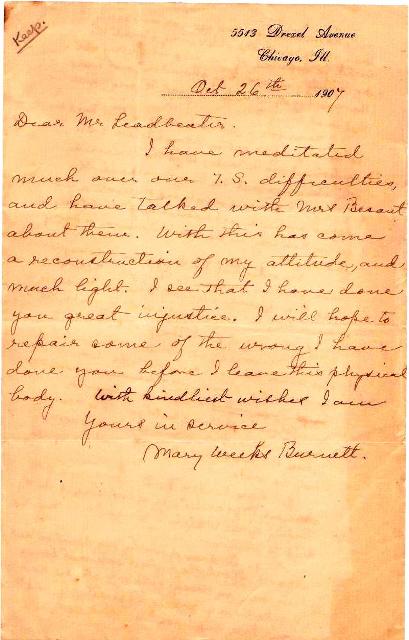 Keep.
5513 Drexel Avenue
Chicago, Ill.
Oct 26th 1907
Dear Mr Leadbeater.
I have meditated
much over our T.S. difficulties,
and have talked with Mrs Besant
about them. With this has come
a reconstruction of my attitude, and
much light. I see that I have done
you great injustice. I will hope to
repair some of the wrong I have
done you before I leave this physical
body. With kindliest wishes I am
Yours in service
Mary Weeks Burnett.